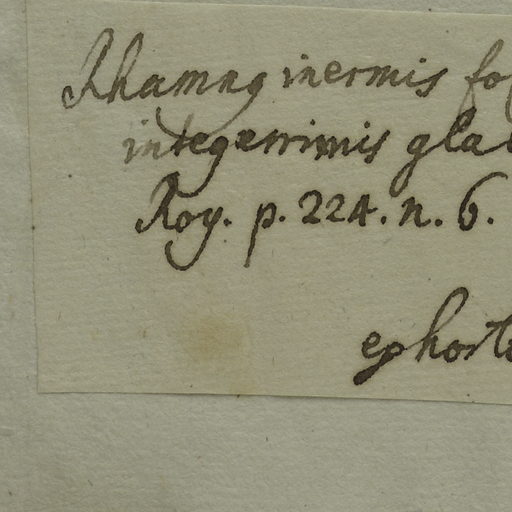 Rhamnus inermis fo
integerrimis gla
Roy. p. 224. n. 6.
ex horto